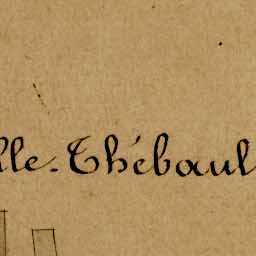 lle-Thébaul